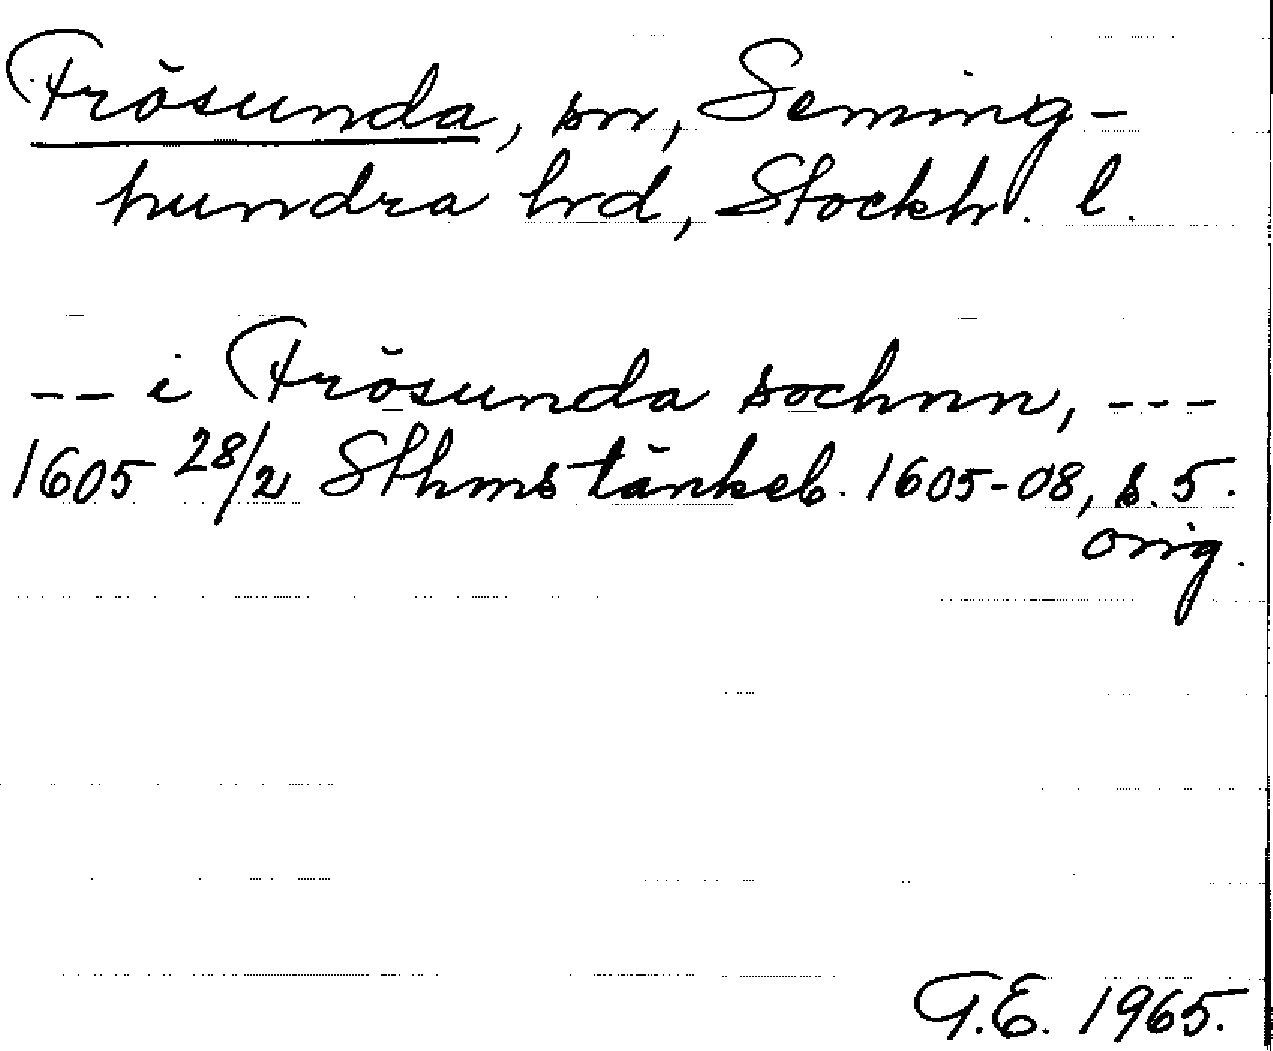 Frösunda, sn, Seming-
hundra hrd, Stockh. l.
-- i Frösunda sochnn, ---
1605 28/2 Sthms tänkeb. 1605-08, s. 5.
orig.
G.E. 1965.